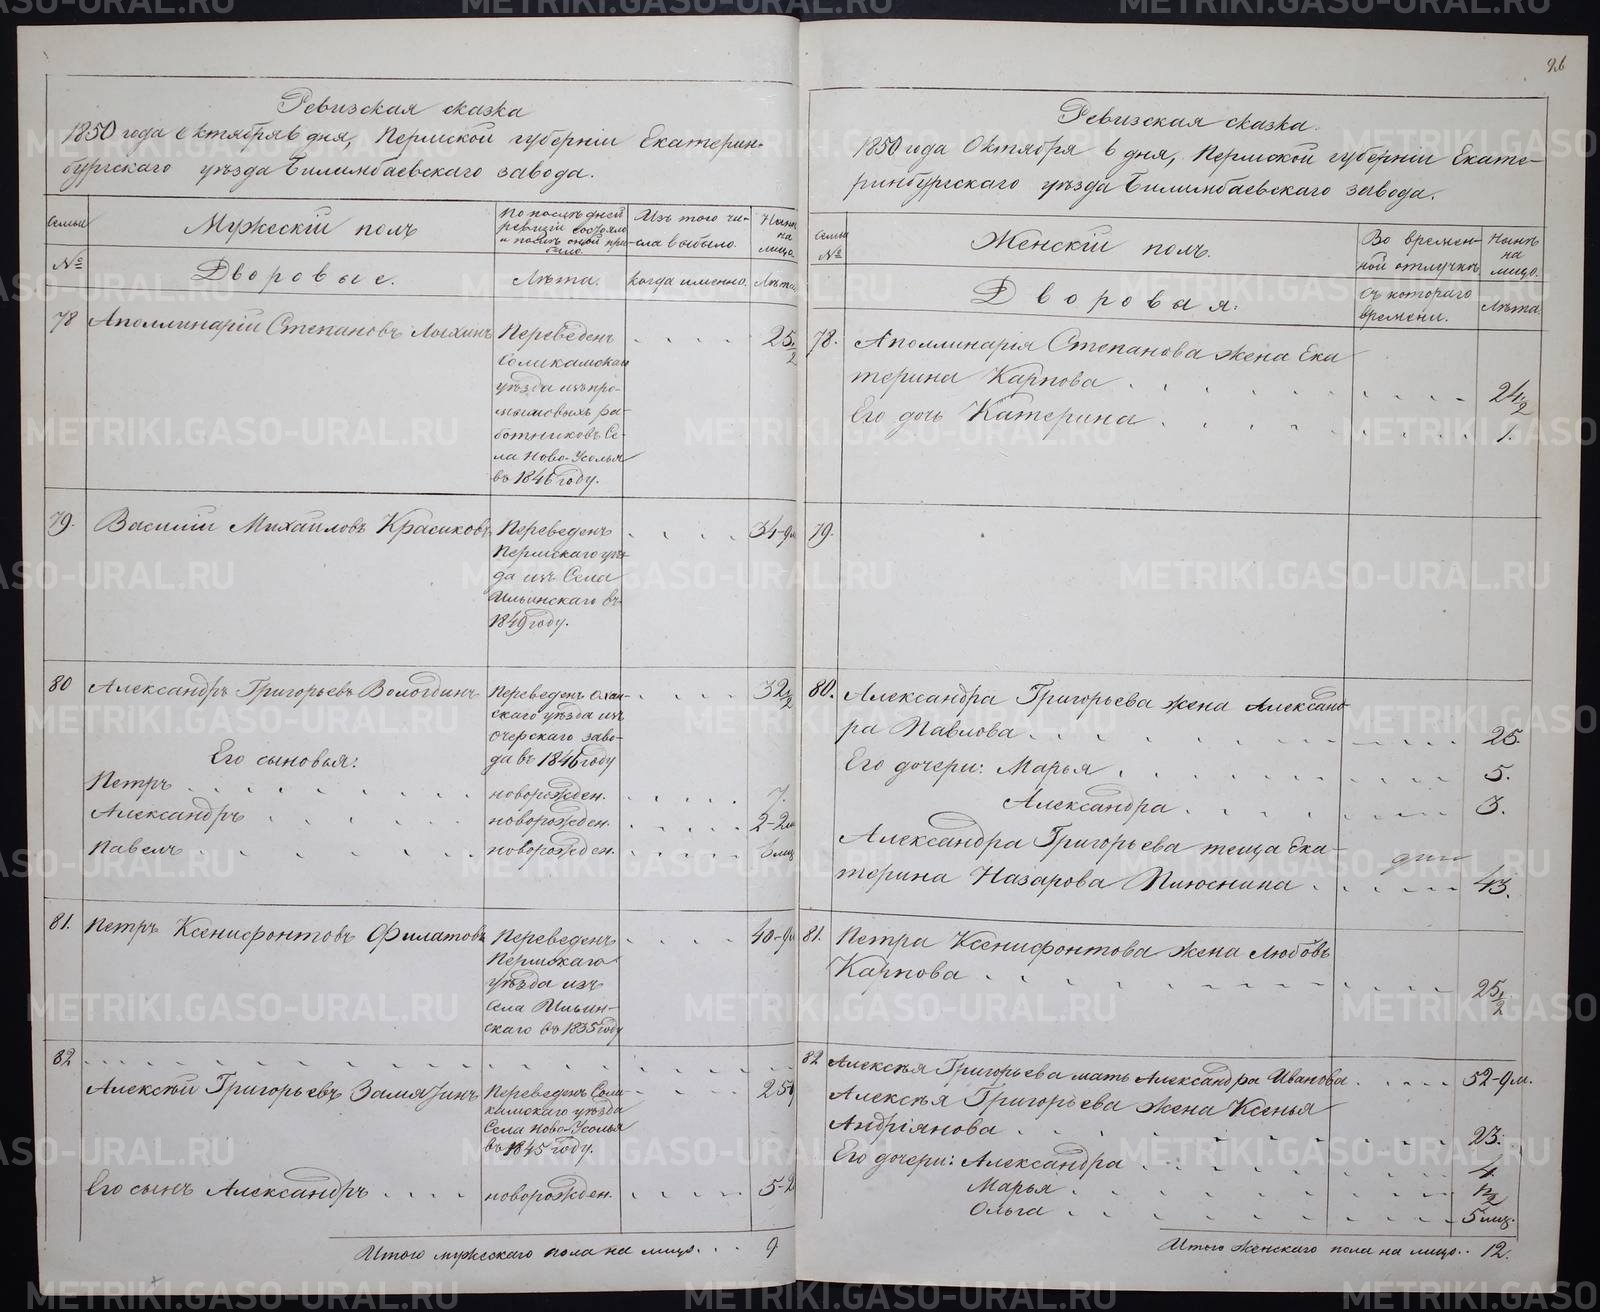 26
Ревизская сказка
1850 года октября 6 дня, Пермской губерніи Екатерин-
бургскаго уѣзда Билимбаевскаго завода.
Семьи
№
Мужескій полъ
Дворовые.
По послѣдней
ревизіи состояло
и послѣ оной при-
было.
Лѣта.
Изъ того чи-
сла выбыло.
когда именно.
Нынѣ
на
лицо.
Лѣта
78 Аполлинарій Степановъ Лыхинъ Переведенъ 25 1/2
Соликамскаго
уѣзда изъ про-
мысловыхъ ра-
ботниковъ Се-
ла Ново-Усолья
въ 1846 году.
79. Василій Михайловъ Красиковъ Переведенъ 34-9м
Пермскаго уѣз-
да изъ Села
Ильинскаго въ
1849 году.
80 Александръ Григорьевъ Вологдинъ Переведенъ Охан- 32 1/2
скаго уѣзда изъ
Очерскаго заво-
да въ 1846 году
Его сыновья:
Петръ новорожден. 7.
Александръ новорожден. 2-2м
Павелъ новорожден. 6 мѣс
81. Петръ Ксенифонтовъ Филатовъ Переведенъ 40-9м
Пермскаго
уѣзда изъ
Села Ильин-
скаго въ 1835 году
82
Алексѣй Григорьевъ Замятинъ Переведенъ Соли- 25
камскаго уѣзда
Села Ново-Усолья
въ 1845 году.
Его сынъ Александръ новорожден. 5-2
Итого мужескаго пола на лицо 9
Ревизская сказка.
1850 года Октября 6 дня, Пермской губерніи Екате-
ринбургскаго уѣзда Билимбаевскаго завода.
Семьи
№
Женскій полъ.
Дворовыя.
Во времен-
ной отлучкѣ
съ котораго
времени.
Нынѣ
на
лицо.
Лѣта.
78. Аполлинарія Степанова жена Ека
терина Карпова 24 1/2
Его дочь Катерина 1.
79.
80. Александра Григорьева жена Александ-
ра Павлова 25.
Его дочери: Марья 5.
Александра 3.
Александра Григорьева теща Ека-
терина Назарова Плюснина 43.
81. Петра Ксенифонтова жена Любовь
Карпова 25 1/2
82 Алексѣя Григорьева мать Александра Иванова 52-9м.
Алексѣя Григорьева жена Ксенья
Андріянова 23.
Его дочери: Александра 4.
Марья 1 1/2
Ольга 5 мѣс.
Итого женскаго пола на лицо 12.
METRIKI.GASO-URAL.RU